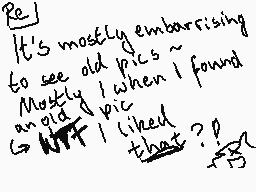 Re
It's mostly embarrising
to see old pics ~
Mostly I when I found
an old pic
↳ WTF I liked
that?!